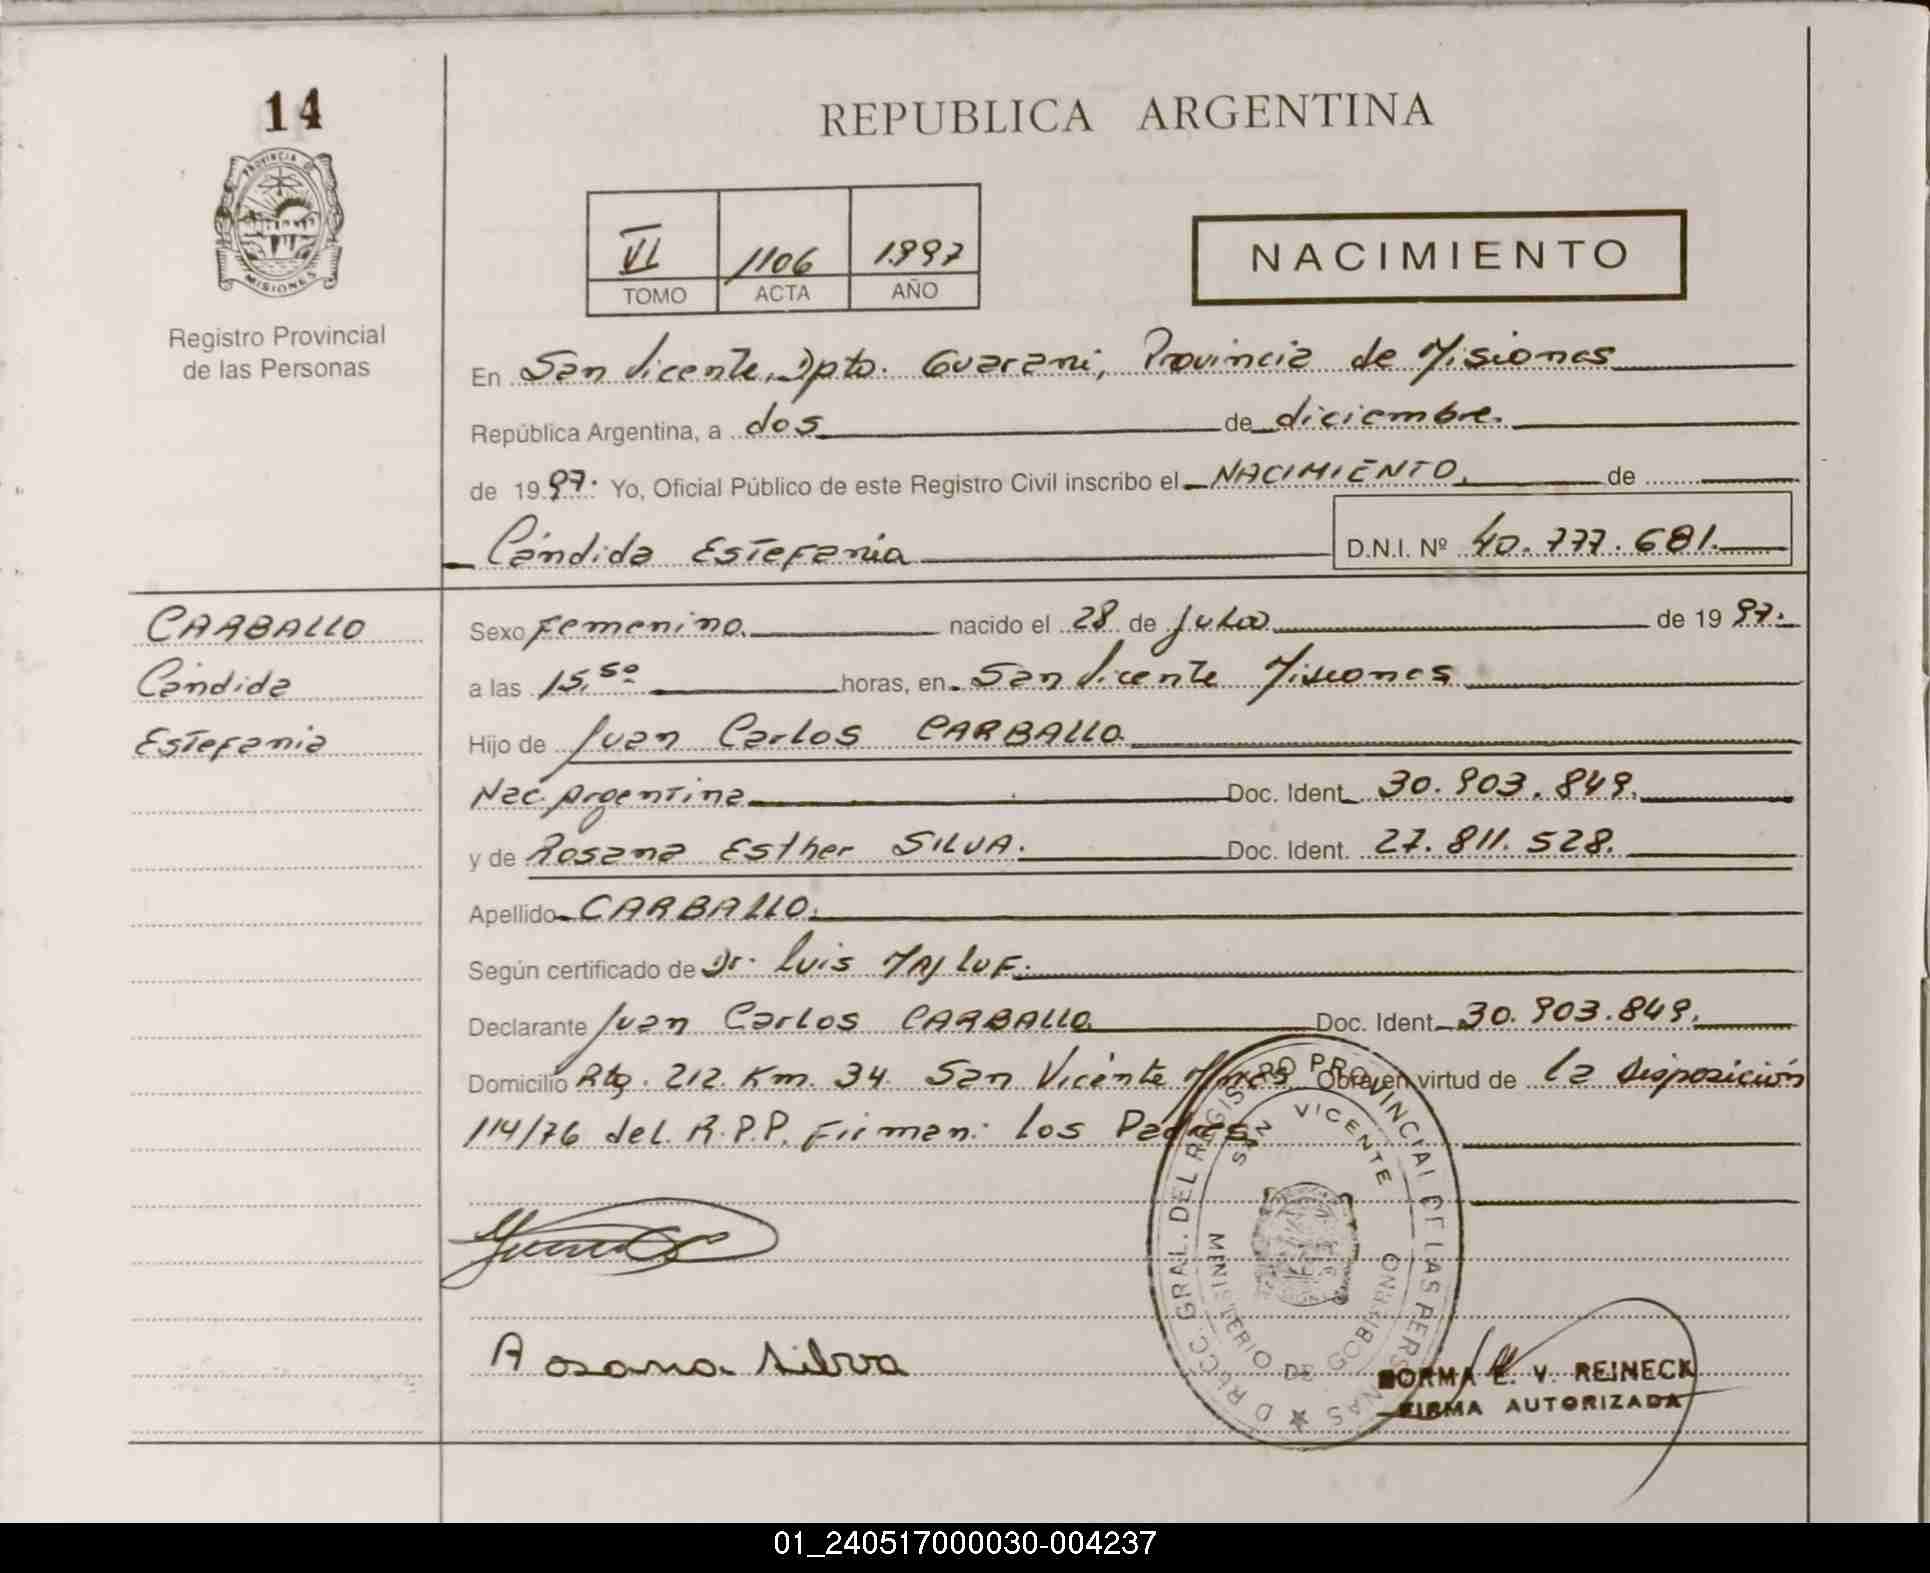 14
REPUBLICA ARGENTINA
PROVINCIA DE
MISIONES
Registro Provincial
de las Personas
VI 1106 1997
TOMO ACTA AÑO
NACIMIENTO
En San Vicente, Dpto. Guarani, Provincia de Misiones
República Argentina, a dos de diciembre.
de 1997. Yo, Oficial Público de este Registro Civil inscribo el NACIMIENTO, de
Cándida Estefania
D.N.I. Nº 40.777.681.
CARBALLO
Cándida
Estefania
Sexo Femenino. nacido el 28 de Julio de 1997.
a las 15,50 horas, en San Vicente Misiones
Hijo de Juan Carlos CARBALLO
Nac. Argentina Doc. Ident. 30.903.849.
y de Rosana Esther SILVA. Doc. Ident. 27.811.528.
Apellido CARBALLO.
Según certificado de Dr. Luis
Declarante Juan Carlos CARBALLO Doc. Ident. 30.903.849.
Domicilio Rta. 212. Km. 34. San Vicente Mnes Obra, en virtud de la Disposición
114/76 del R.P.P. Firman: los Padres
Rosana Silva
D RGCC. GRAL. DEL REGISTRO PROVINCIAL DE LAS PERSONAS
SAN VICENTE
MINISTERIO DE GOBIERNO
NORMA E. V. REINECK
FIRMA AUTORIZADA
01_240517000030-004237